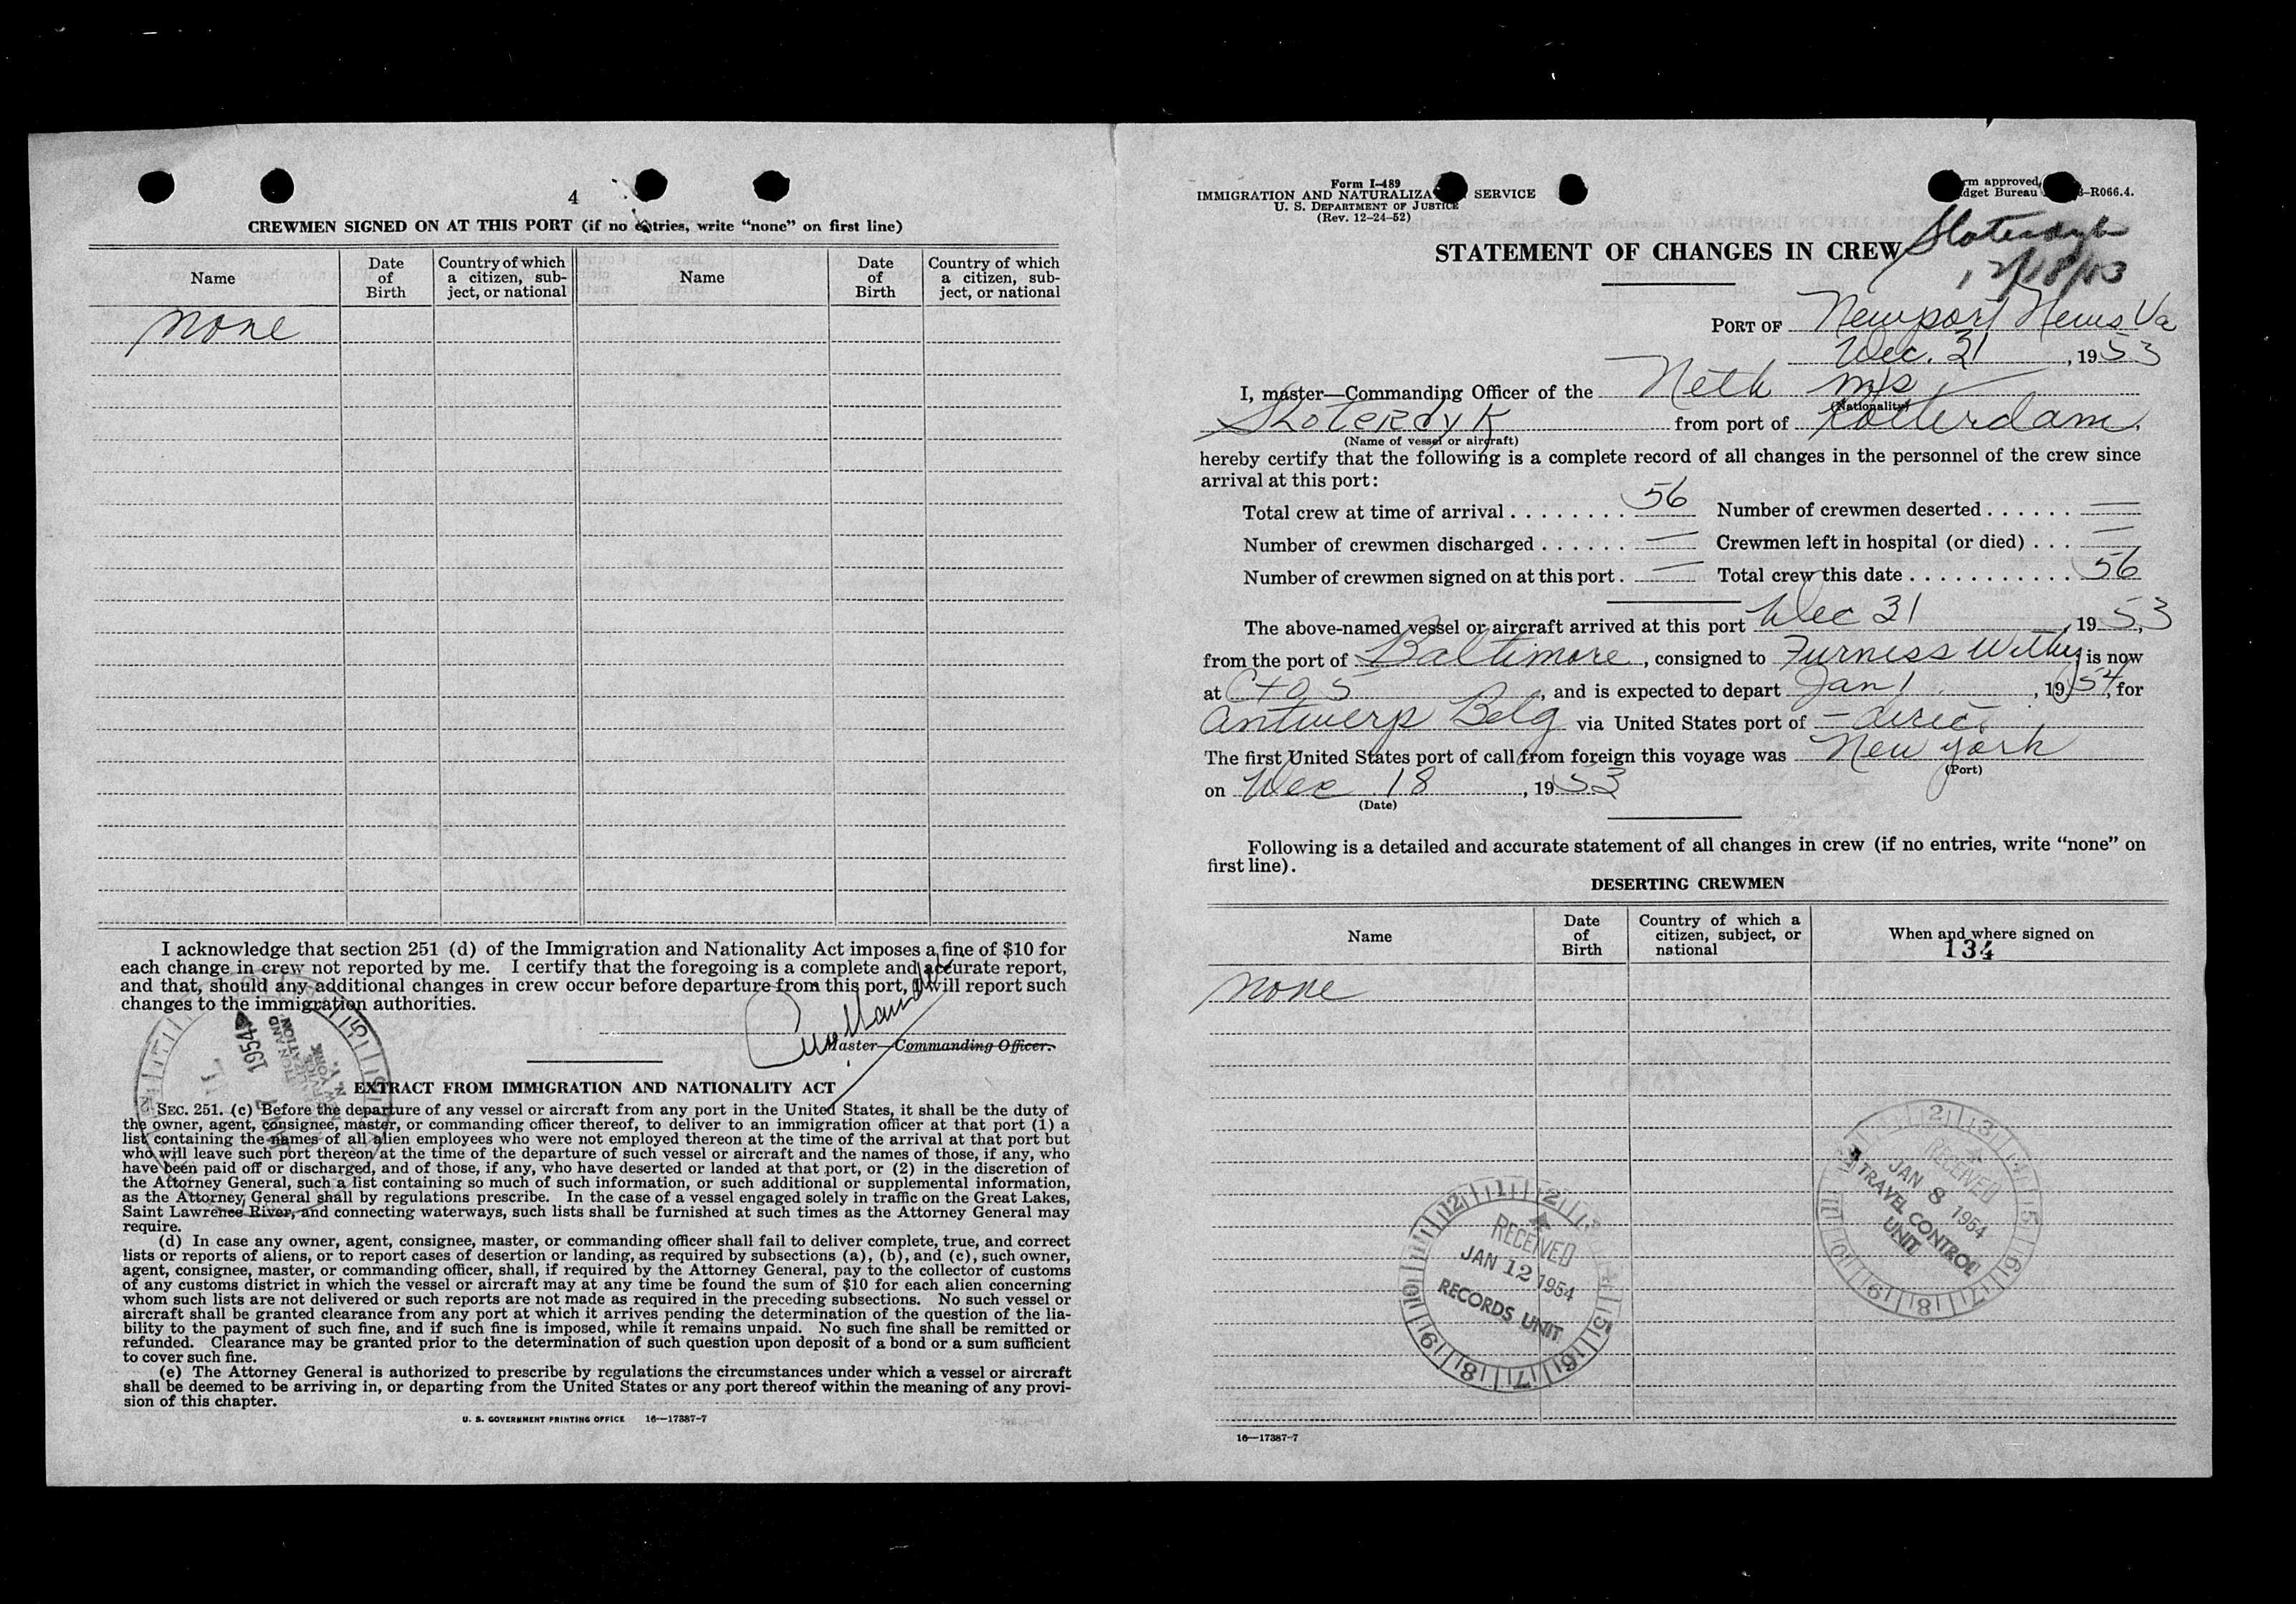 4
CREWMEN SIGNED ON AT THIS PORT (if no entries, write “none” on first line)
Name
Date of Birth
Country of which a citizen, subject, or national
Name
Date of Birth
Country of which a citizen, subject, or national
none
I acknowledge that section 251 (d) of the Immigration and Nationality Act imposes a fine of $10 for
each change in crew not reported by me. I certify that the foregoing is a complete and accurate report,
and that, should any additional changes in crew occur before departure from this port, I will report such
changes to the immigration authorities.
Master—Commanding Officer.
1954
EXTRACT FROM IMMIGRATION AND NATIONALITY ACT
SEC. 251. (c) Before the departure of any vessel or aircraft from any port in the United States, it shall be the duty of
the owner, agent, consignee, master, or commanding officer thereof, to deliver to an immigration officer at that port (1) a
list containing the names of all alien employees who were not employed thereon at the time of the arrival at that port but
who will leave such port thereon at the time of the departure of such vessel or aircraft and the names of those, if any, who
have been paid off or discharged, and of those, if any, who have deserted or landed at that port, or (2) in the discretion of
the Attorney General, such a list containing so much of such information, or such additional or supplemental information,
as the Attorney General shall by regulations prescribe. In the case of a vessel engaged solely in traffic on the Great Lakes,
Saint Lawrence River, and connecting waterways, such lists shall be furnished at such times as the Attorney General may
require.
(d) In case any owner, agent, consignee, master, or commanding officer shall fail to deliver complete, true, and correct
lists or reports of aliens, or to report cases of desertion or landing, as required by subsections (a), (b), and (c), such owner,
agent, consignee, master, or commanding officer, shall, if required by the Attorney General, pay to the collector of customs
of any customs district in which the vessel or aircraft may at any time be found the sum of $10 for each alien concerning
whom such lists are not delivered or such reports are not made as required in the preceding subsections. No such vessel or
aircraft shall be granted clearance from any port at which it arrives pending the determination of the question of the lia-
bility to the payment of such fine, and if such fine is imposed, while it remains unpaid. No such fine shall be remitted or
refunded. Clearance may be granted prior to the determination of such question upon deposit of a bond or a sum sufficient
to cover such fine.
(e) The Attorney General is authorized to prescribe by regulations the circumstances under which a vessel or aircraft
shall be deemed to be arriving in, or departing from the United States or any port thereof within the meaning of any provi-
sion of this chapter.
U. S. GOVERNMENT PRINTING OFFICE 16—17387-7
Form I-489
IMMIGRATION AND NATURALIZA SERVICE
U. S. DEPARTMENT OF JUSTICE
(Rev. 12-24-52)
rm approved
dget Bureau -R066.4.
Sloterdyk
12/18/53
STATEMENT OF CHANGES IN CREW
PORT OF Newport News Va
Dec. 31, 1953
I, master—Commanding Officer of the Neth m/s
(Nationality)
SLOTERdyK from port of Rotterdam.
(Name of vessel or aircraft)
hereby certify that the following is a complete record of all changes in the personnel of the crew since
arrival at this port:
Total crew at time of arrival . . . . . . . . 56 Number of crewmen deserted . . . . . . —
Number of crewmen discharged . . . . . . — Crewmen left in hospital (or died) . . . —
Number of crewmen signed on at this port . — Total crew this date . . . . . . . . . . . . 56
The above-named vessel or aircraft arrived at this port Dec 31, 1953,
from the port of Baltimore, consigned to Furness Withy is now
at C+O 5, and is expected to depart Jan 1, 1954, for
Antwerp Belg via United States port of – direct
The first United States port of call from foreign this voyage was New York
(Port)
on Dec 18, 1953
(Date)
Following is a detailed and accurate statement of all changes in crew (if no entries, write “none” on
first line).
DESERTING CREWMEN
Name
Date of Birth
Country of which a citizen, subject, or national
When and where signed on
134
none
RECEIVED
JAN 8 1954
TRAVEL CONTROL
UNIT
RECEIVED
JAN 12 1954
RECORDS UNIT
16—17387-7